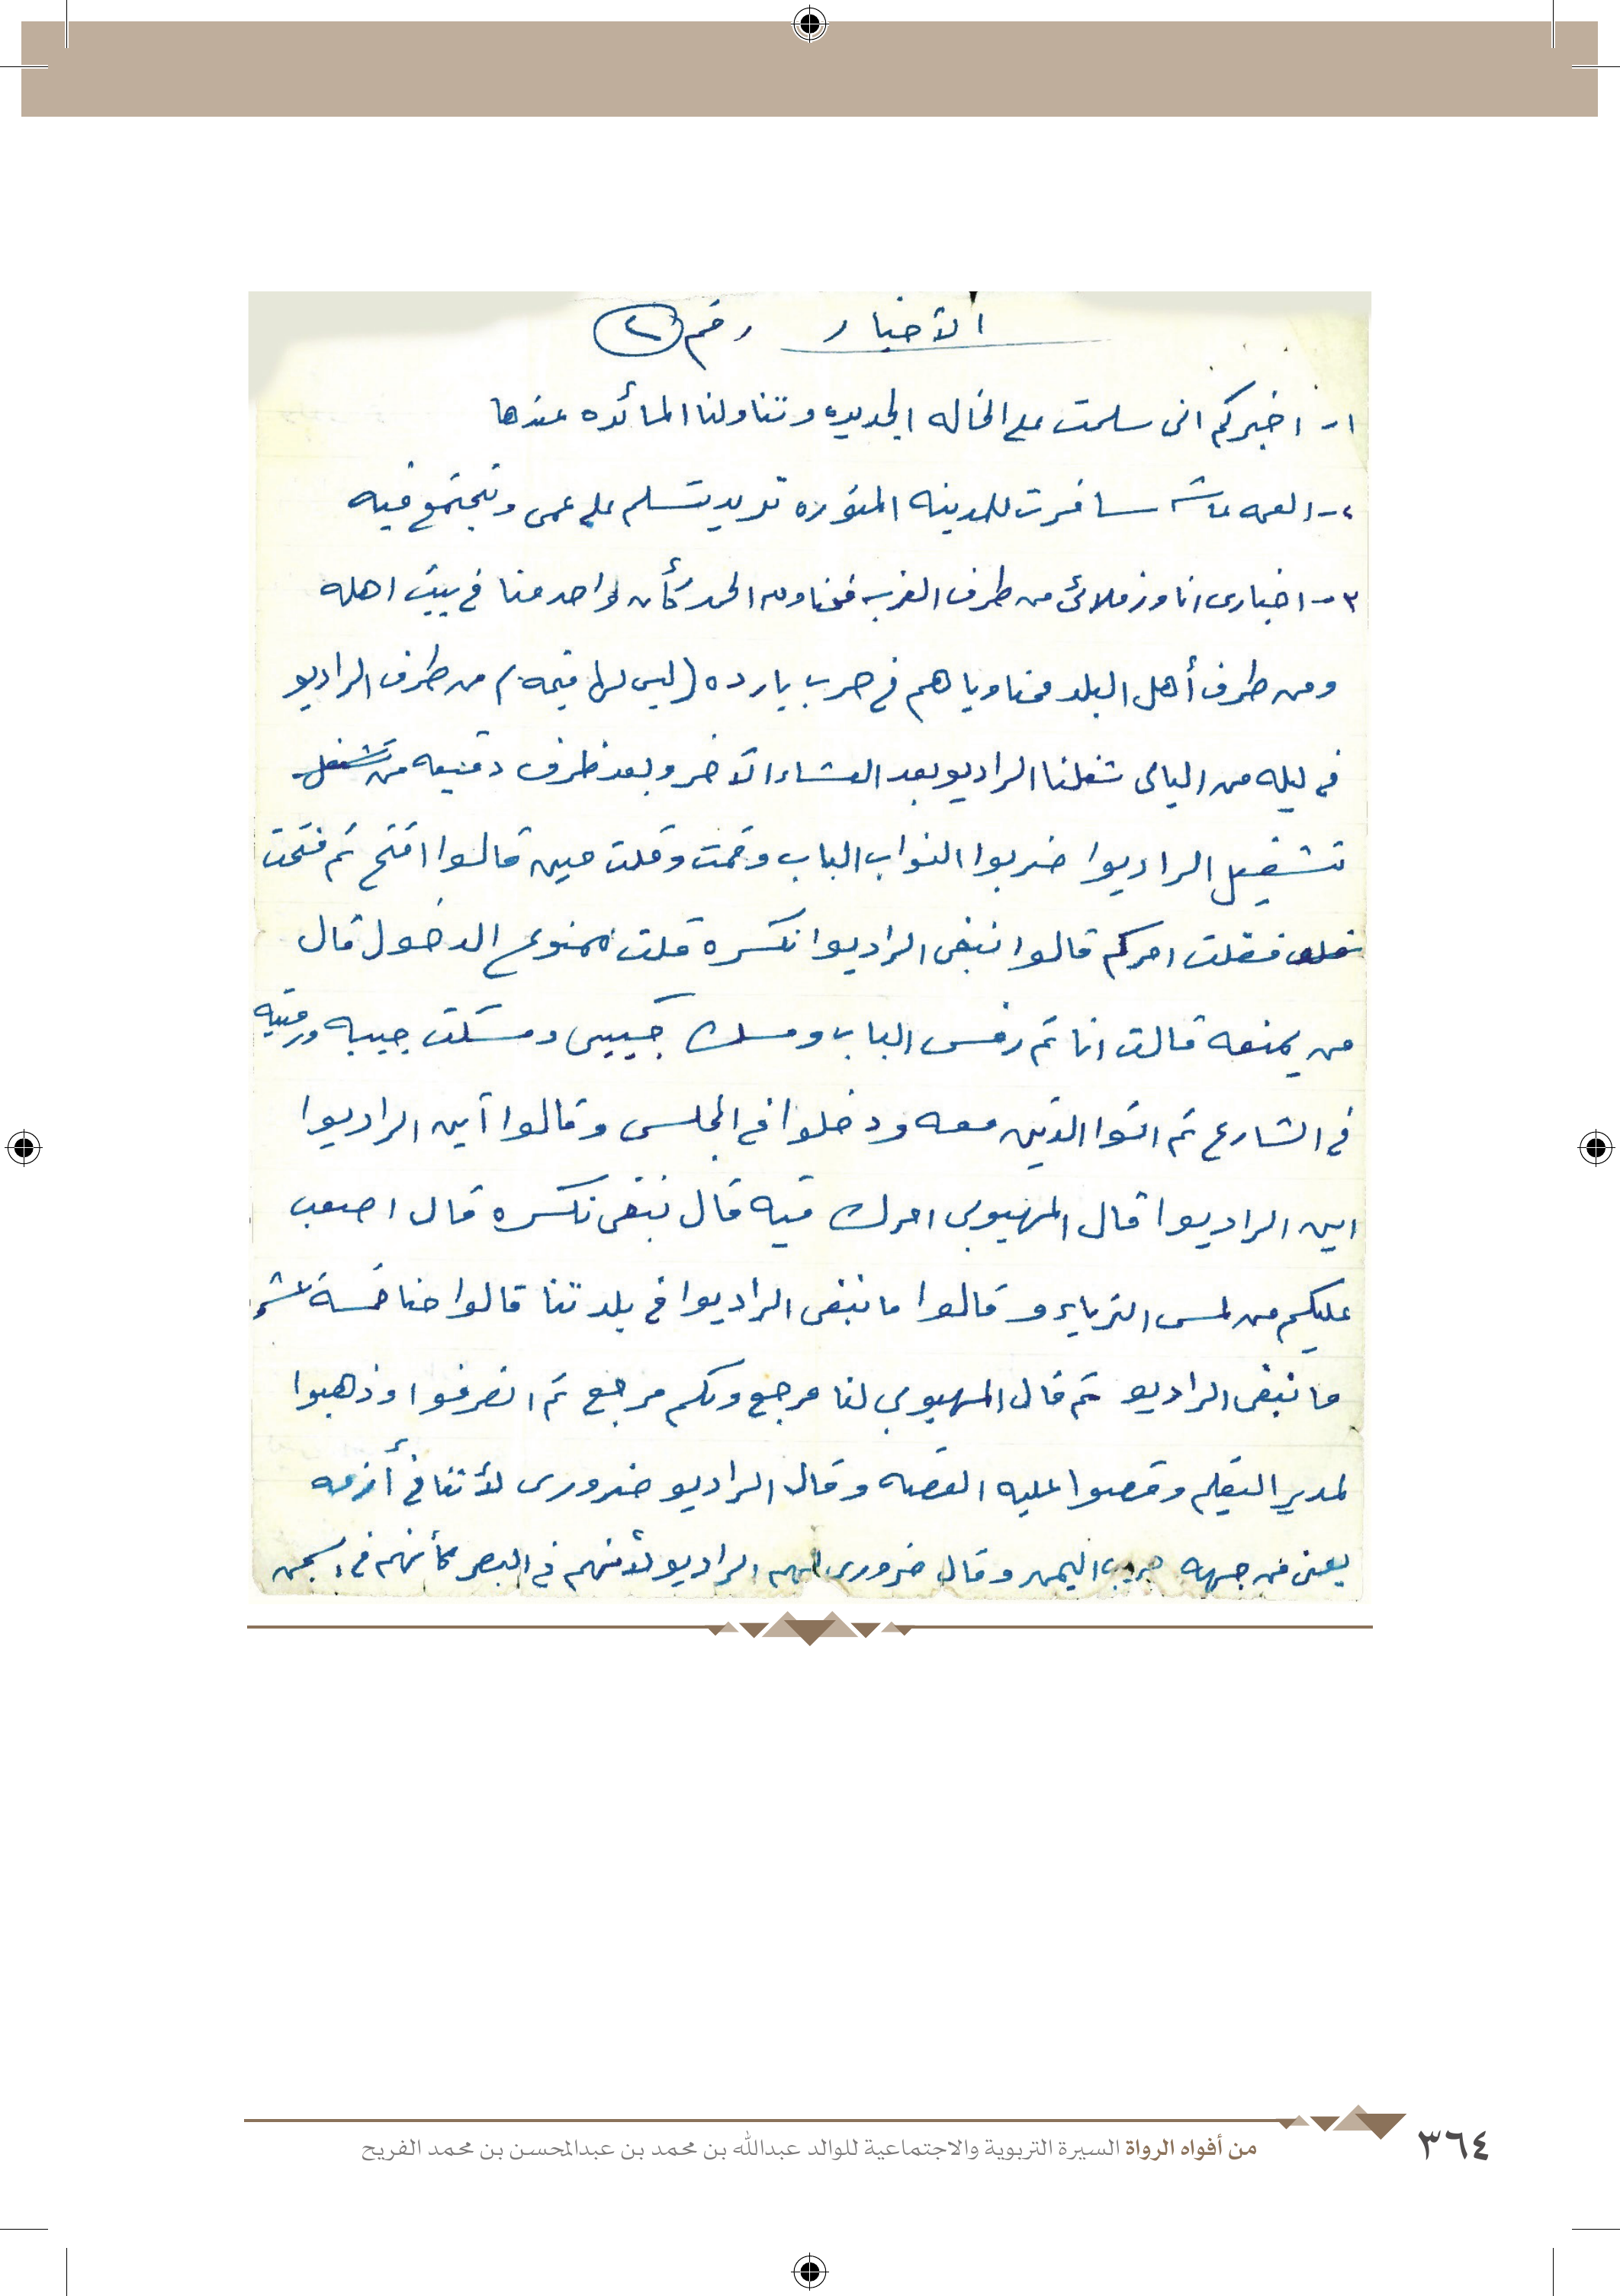 الأخبار رقم (٢)
١- اخبركم انى سلمت على الخاله الجديده وتناولنا المائده عندها
٢- العمه سافرت للمدينه المنوره تريد تسلم على عمى وتجتمع فيه
٣- اخبارى انا وزملائى من طرف الغربه فحنا ولله الحمد كأن واحد منا في بيت اهله
ومن طرف أهل البلد فحنا وياهم في حرب بارده (ليس لها قيمه) من طرف الراديو
في ليله من اليالى شغلنا الراديو بعد العشاء الآخر وبعد ظرف دقيقه من
تشغيل الراديوا ضربوا النواب الباب وقمت وقلت مين قالوا افتح ثم فتحت
فقلت امركم قالوا نبغى الراديوا نكسره قلت ممنوع الدخول قال
من يمنعه قالت انا ثم رفس الباب ومسك جيبى ومسكت جيبه ورميته
في الشارع ثم اتوا الذين معه ودخلوا في المجلس وقالوا أين الراديوا
اين الراديوا قال المهيوبي امرك فيه قال نبغى نكسره قال اصعب
عليكم من لمس الثرياء وقالوا ما نبغى الراديوا في بلدتنا قالوا حنا خمسة عشر
ما نبغى الراديو ثم قال المهيوبي لنا مرجع ولكم مرجع ثم انصرفوا وذهبوا
لمدير التعليم وقصوا عليه القصه وقال الراديو ضرورى لأننا في أزمه
يعنى من جهه حرب اليمن وقال ضرورى لهم الراديو لأنهم في البصر كأنهم في السجن
٣٦٤ من أفواه الرواة السيرة التربوية والاجتماعية للوالد عبدالله بن محمد بن عبدالمحسن بن محمد الفريح